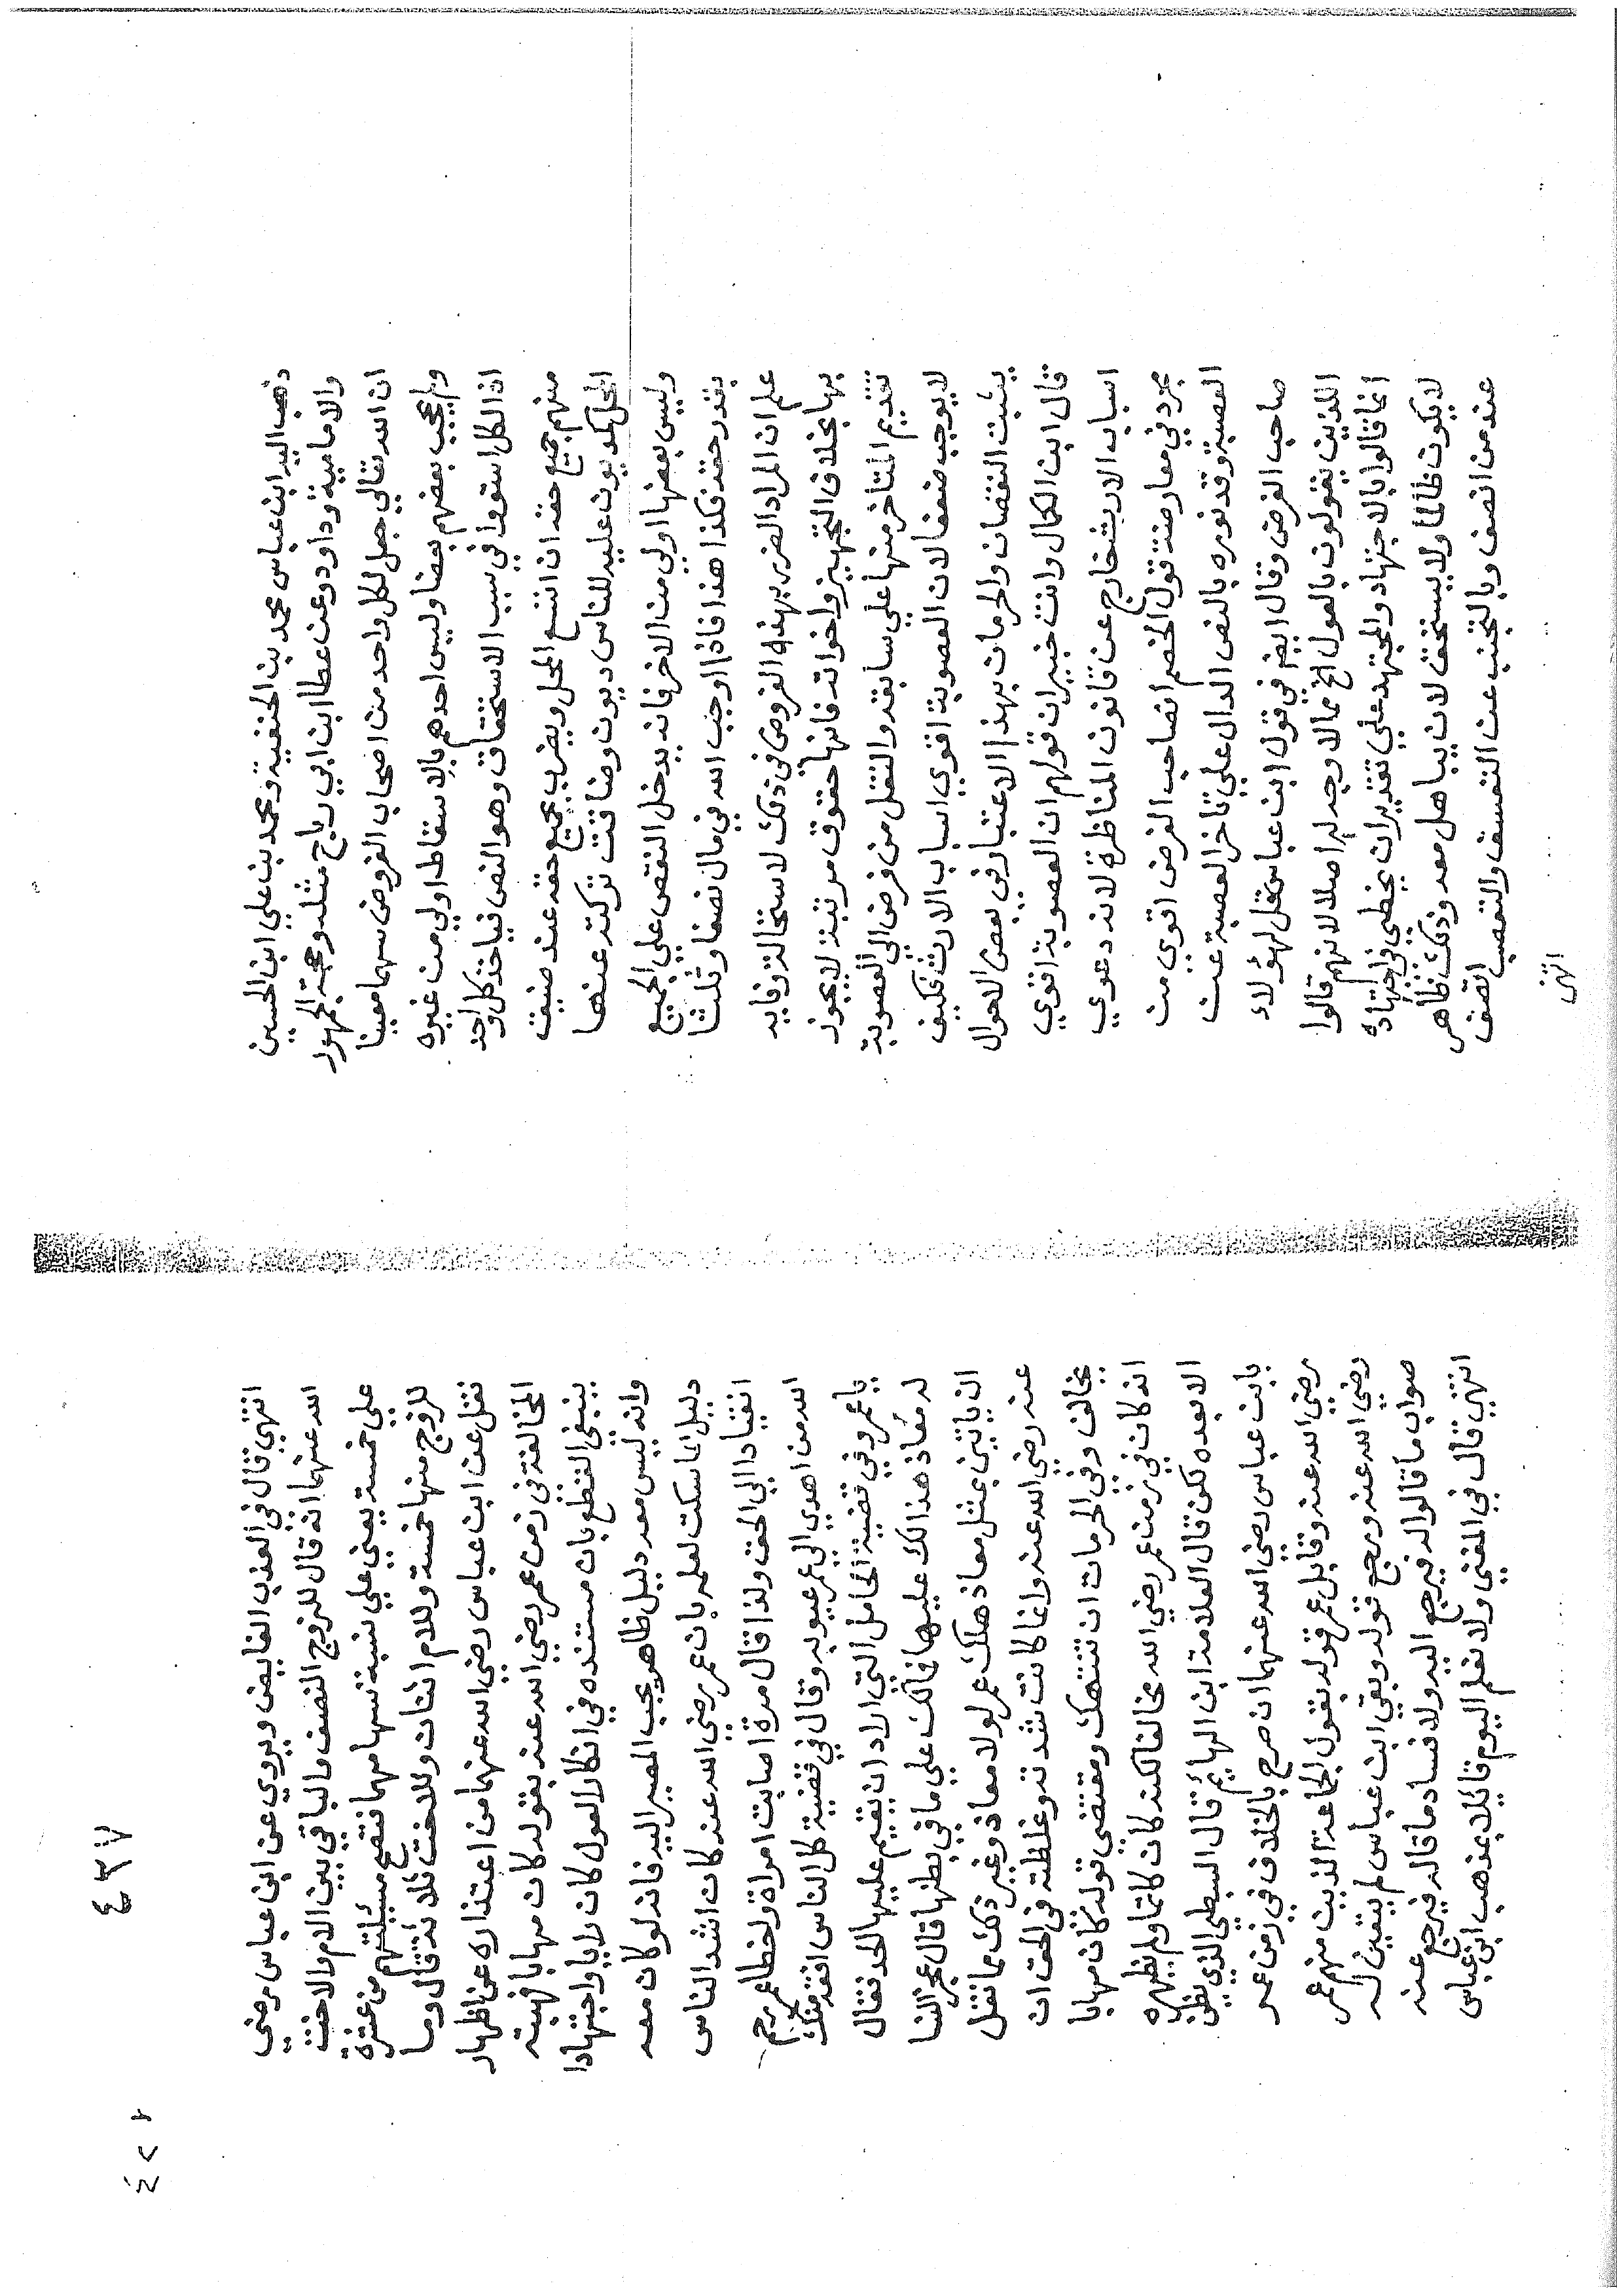 ذهب اليه ابن عباس محمد بن الحنفية ومحمد بن علي ابن الحسين
والامامية وداود وعن عطا ابن ابي رباح مثله وحجة الجمهور
ان الله تعالي جعل لكل واحد من اصحاب الفروض سهما معينا
ولم يحجب بعضهم بعضا وليس احدهم بالاسقاط اولي من غيره
اذ الكل استووا في سبب الاستحقاق وهو النص فياخذ كل واحد
منهم جميع حقه ان اتسع المحل ويضرب بجميع حقه عند ضيق
المحل كمديون عليه للناس ديون وضاقت تركته عنها
وليس بعضها اولي من الاخر فانه يدخل النقص علي الجميع
بقدر حقه فكذا هذا فاذا اوجب الله في مال نصفا وثلثا
علم ان المراد الضرب بهذه الفروض في ذلك لاستحالة وفايه
بها بخلاف التجهيز واخواته فانها حقوق مرتبة لا يجوز
تقديم المتاخر منها علي سابقه والنقل من فرض الي العصوبة
لا يوجب ضعفا لان العصوبة اقوي اسباب الارث فكيف
يثبت النقصان والحرمان بهذا الاعتبار في بعض الاحوال
قال ابن الكمال وانت خبير ان قولهم ان العصوبة اقوي
اسباب الارث خارج عن قانون المناظرة لانه دعوي
مجرد في معارضة قول الخصم ان صاحب الفرض اقوي من
العصبة وقد نوره بالنص الدال علي تاخر العصبة عن
صاحب الفرض وقال ايض في قول ابن عباس هل لهؤلاء
اللذين يقولون بالعول الخ مما لا وجه له اصلا لانهم قالوا
انما قالوا بالاجتهاد والمجتهد علي تقدير ان يخطي في اجتهاده
لا يكون ظالما ولا يستحق لان يباهل معه وذلك ظاهر
عند من انصف وبالتجنب عن التعسف والتعصب اتصف
انتهى
٤٣٧
انتهي قال في العذب الفايض ويروي عن ابن عباس رضي
الله عنهما انه قال للزوج النصف والباقي بين الام والاخت
علي خمسة يعني علي نسبة سهامهما فتصح مسيلتهم من عشرة
للزوج منها خمسة وللام اثنان وللاخت ثلاثة قال وما
نقل عن ابن عباس رضي الله عنهما من اعتذاره عن اظهار
المخالفة في زمن عمر رضي الله عنه بقوله كان مهابا فهبته
ينبغي القطع بان مستنده في انكار العول كان رايا واجتهادا
وانه ليس معه دليل ظاهر يجب المصير اليه فانه لو كان معه
دليل لما سكت لعلمه بان عمر رضي الله عنه كان اشد الناس
انقيادا الي الحق ولذا قال مرة اصابت امراة واخطا عمر رحم
الله من اهدي الي عمر عيوبه وقال في قضية كل الناس افقه منك
يا عمر وفي قضية الحامل التي اراد ان يقيم عليها الحد فقال
له معاذ هذا لك عليها فما لك علي ما في بطنها قال عجز النسا
ان ياتين بمثل معاذ هلك عمر لولا معاذ وغير ذلك مما نقل
عنه رضي الله عنه وانما كانت شدته وغلظته في الحق ان
يخالف وفي الحرمات ان تنتهك ومقتضي قوله كان مهابا
انه كان في زمن عمر رضي الله مخالفا لكنه كان كاتما ولم يظهره
الا بعده لكن قال العلامة ابن الهايم قال السبطي الذي يظن
بابن عباس رضي الله عنهما ان صرح بالخلاف في زمن عمر
رضي الله عنه وقابل عمر قوله بقول الجماعة الذين منهم عمر
رضي الله عنه ورجح قوله وبقي ابن عباس لم يتعين له
صواب ما قالوا له فيرجع اليه ولا فساد ما قاله فيرجع عنه
انتهي قال في المغني ولا نعلم اليوم قائلا بمذهب ابن عباس